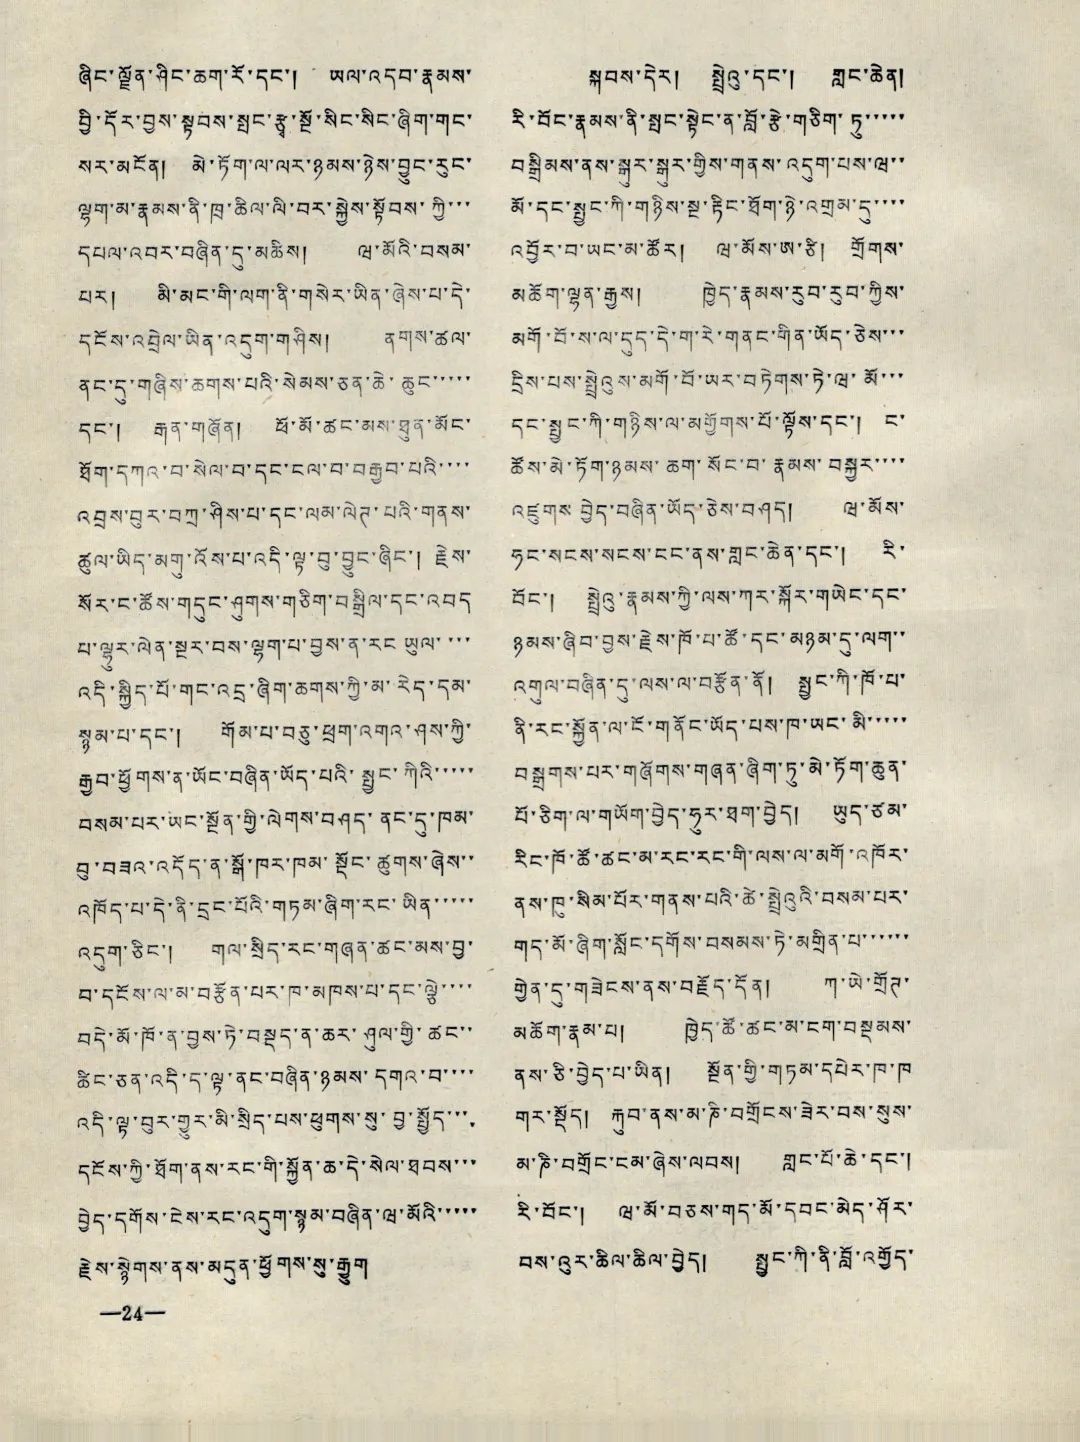 ཞིང་ལྗོན་ཤིང་ཆག་རོ་དང་། ཡལ་འདབ་རྣམས་
བྱི་དོར་བྱས་སྟབས་སྤང་རྩྭ་སྔོ་སིང་སིང་ཞིག་གང་
སར་མངོན། མེ་ཏོག་ལ་ལར་ཉམས་ཉེས་བྱུང་རུང་
ལྷག་མ་རྣམས་ནི་ཁྲ་ཆིལ་ལི་བར་སྐྱེས་སྟོབས་ཀྱི་་་
དཔལ་འབར་བཞིན་དུ་མཆིས། ཝ་མོའི་བསམ་
པར། མི་མང་གི་ལག་ནི་གསེར་ཡིན་ཞེས་པ་དེ་
དངོས་འབྲེལ་ཡིན་འདུག་གཤིས། ནགས་ཚལ་
ནང་དུ་གཞིས་ཆགས་པའི་སེམས་ཅན་ཆེ་ཆུང་་་་་
དང་། རྒན་གཞོན། ཕོ་མོ་ཚང་མས་ཐུན་མོང་
ཐོག་དཀའ་བ་སེལ་བ་དང་ངལ་བ་བརྒྱབ་པའི་་་་
འབྲས་བུར་བཀྲ་ཤིས་པ་དང་ལམ་ལེཊ་པའི་གནས་
ཚུལ་ཡིད་མགུ་འོས་པ་འདི་ལྟ་བུ་བྱུང་ཞིང་། རྗེས་
སོར་ང་ཚོས་གདུང་ཤུགས་གཅིག་བསྒྲིལ་དང་འབད
པ་ལྷུར་ལེན་སྔར་བས་ལྷག་པ་བྱས་ན་རང་ཡུལ་་་་
འདི་སྐྱིད་པོ་གང་འདྲ་ཞིག་ཆགས་ཀྱི་མ་རེད་དམ་
སྙམ་པ་དང་། གོམ་པ་བཅུ་ཕྲག་འགའ་ཤས་ཀྱི་
རྒྱབ་ཕྱོགས་ན་ཡོང་བཞིན་ཡོད་པའི་སྤྱང་ཀིའི་་་་་
བསམ་པར་ཡང་སྔོན་གྱི་ལེགས་བཤད་ནང་དུ་ཁམ་
བུ་བཟའ་འདོད་ན་སྒོ་ཁར་ཁམ་སྡོང་ཚུགས་ཞེས་་
འཁོད་པ་དེ་ནི་དྲང་པོའི་གཏམ་ཞིག་རང་ཡིན་་་་་
འདུག་ཅིང་། གལ་སྲིད་རང་གཞན་ཚང་མས་བྱ་
བ་དངོས་ལ་མ་བརྩོན་པར་ཁ་མཁས་པ་དང་ལྕེ་་་་
བདེ་མོ་ཁོ་ན་བྱས་ཏེ་བསྡད་ན་ཆར་ཤུལ་གྱི་ཚང་་
ཚིང་ཅན་འདི་ད་ལྟ་ནང་བཞིན་ཉམས་དགའ་བ་་་་
འདི་ལྟ་བུར་གྱུར་མི་སྲིད་པས་ཕུགས་སུ་བྱ་སྤྱོད་་་
དངོས་ཀྱི་ཐོག་ནས་རང་གི་སྐྱོན་ཆ་དེ་སེལ་ཐབས་་་
བྱེད་དགོས་ངེས་རང་འདུག་སྙམ་བཞིན་ཝ་མོའི་་་་་
རྗེས་སྙེགས་ནས་མདུན་ཕྱོགས་སུ་རྒྱུག
—24—
སྐབས་དེར། སྤྲེའུ་དང་། གླང་ཆེན།
རི་བོང་རྣམས་ནི་སྤང་སྟེང་ན་བློ་རྩེ་གཅིག་ཏུ་་་་་
བསྒྲིམས་ནས་སྐུར་སྐུར་གྱིས་གནས་འདུག་པས་ཝ་་
མོ་དང་སྤྱང་ཀི་གཉིས་སྔ་རྟིང་ཐོག་ཉེ་འགྲམ་དུ་་་་
འབྱོར་བ་ཡང་མ་ཚོར། ཝ་མོས་ཨ་ཙི། གྲོགས་
མཆོག་ལྷན་རྒྱས། ཁྱེད་རྣམས་རུབ་རུབ་ཀྱིས་
མགོ་བོ་ས་ལ་དུད་དེ་ག་རེ་གནང་གིན་ཡོད་ཅེས་་་
དྲིས་པས་སྤྲེའུས་མགོ་བོ་ཡར་བཏེགས་ཏེ་ཝ་མོ་་་
དང་སྤྱང་ཀི་གཉིས་ལ་མགྱོགས་པོ་ལྟོས་དང་། ང་
ཚོས་མེ་ཏོག་ཉམས་ཆག་སོང་བ་རྣམས་བསྐྱར་་་་
འཛུགས་བྱེད་བཞིན་ཡོད་ཅེས་བཤད། ཝ་མོས་
ཧང་སངས་སངས་ངང་ནས་གླང་ཆེན་དང་། རི་
བོང་། སྤྲེའུ་རྣམས་ཀྱི་ལས་ཀར་སྐོར་གཡེང་དང་
ཉམས་ཞིབ་བྱས་རྗེས་ཁོ་པ་ཚོ་དང་མཉམ་དུ་ལག་་
འགུལ་བཞིན་དུ་ལས་ལ་བརྩོན་ནོ། སྤྱང་ཀི་ཁོ་པ་
ནི་རང་སྐྱོན་ལ་ངོ་གནོང་ཡོད་པས་ཁ་ཡང་མི་་་་་
བསྒྲགས་པར་གཞོགས་གཞན་ཞིག་ཏུ་མེ་ཏོག་ཆུན་
པོ་ཅིག་ལ་གཡོག་བྱེད་ཧུར་ཐག་བྱེད། ཡུད་ཙམ་
རིང་ཁོ་ཚོ་ཚང་མ་རང་རང་གི་ལས་ལ་མགོ་འཁོར་
ནས་ཁུ་སིམ་པོར་གནས་པའི་ཚེ་སྤྲེའུའི་བསམ་པར་
གད་མོ་ཞིག་སློང་དགོས་བསམས་ཏེ་མགྲིན་པ་་་་་་
གྱེན་དུ་གཟེངས་ནས་བརྗོད་དོན། ཀ་ཡེ་གྲོཊ་
མཆོག་རྣམ་པ། ཁྱེད་ཚོ་ཚང་མ་ངག་བསྡམས་
ནས་ཅི་བྱེད་པ་ཡིན། སྔོན་གྱི་གཏམ་དཔེར་ཁ་ཁ
གར་སྡོད། རྐུབ་ནས་མ་ཎི་བགྲོངས་ཟེར་བས་སུས་
མ་ཎི་བགྲོང་ངམ་ཞེས་ལབས། གླང་པོ་ཆེ་དང་།
རི་བོང་། ཝ་མོ་བཅས་གད་མོ་དབང་མེད་ཤོར་
བས་འུར་ཆིལ་ཆིལ་བྱེད། སྤྱང་ཀི་ནི་བློ་འགྱོད་